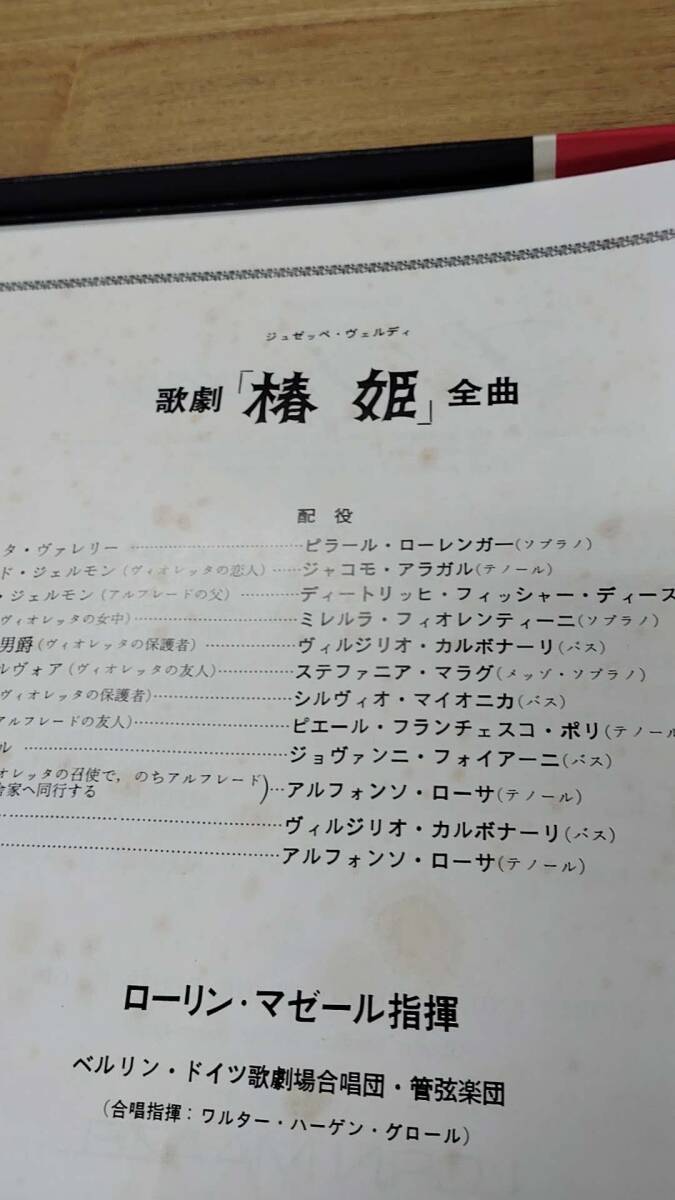 ジュゼッペ・ヴェルディ
歌劇「椿姫」全曲
配役
タ・ヴァレリー ……………………………ピラール・ローレンガー(ソプラノ)
ド・ジェルモン(ヴィオレッタの恋人)………ジャコモ・アラガル(テノール)
・ジェルモン(アルフレードの父)……………ディートリッヒ・フィッシャー・ディース
ヴィオレッタの女中)……………………ミレルラ・フィオレンティーニ(ソプラノ)
男爵(ヴィオレッタの保護者)………………ヴィルジリオ・カルボナーリ(バス)
ルヴォア(ヴィオレッタの友人)……………ステファニア・マラグ(メッゾ・ソプラノ)
ヴィオレッタの保護者)……………………シルヴィオ・マイオニカ(バス)
アルフレードの友人)………………………ピエール・フランチェスコ・ポリ(テノール
ル ……………………………………ジョヴァンニ・フォイアーニ(バス)
オレッタの召使で，のちアルフレード
舎家へ同行する)…アルフォンソ・ローサ(テノール)
……………………………………ヴィルジリオ・カルボナーリ(バス)
……………………………………アルフォンソ・ローサ(テノール)
ローリン・マゼール指揮
ベルリン・ドイツ歌劇場合唱団・管弦楽団
(合唱指揮：ワルター・ハーゲン・グロール)